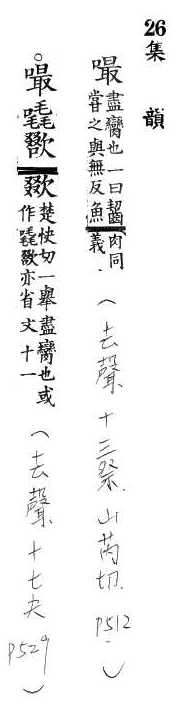 26 集韻
嘬 盡臠也一曰齧
嘗之與無反魚
肉同
義
(去聲十三祭 山芮切 P512)
嘬 欼 楚快切一舉盡臠也或
作 亦省文十一
(去聲十七夬 P529)